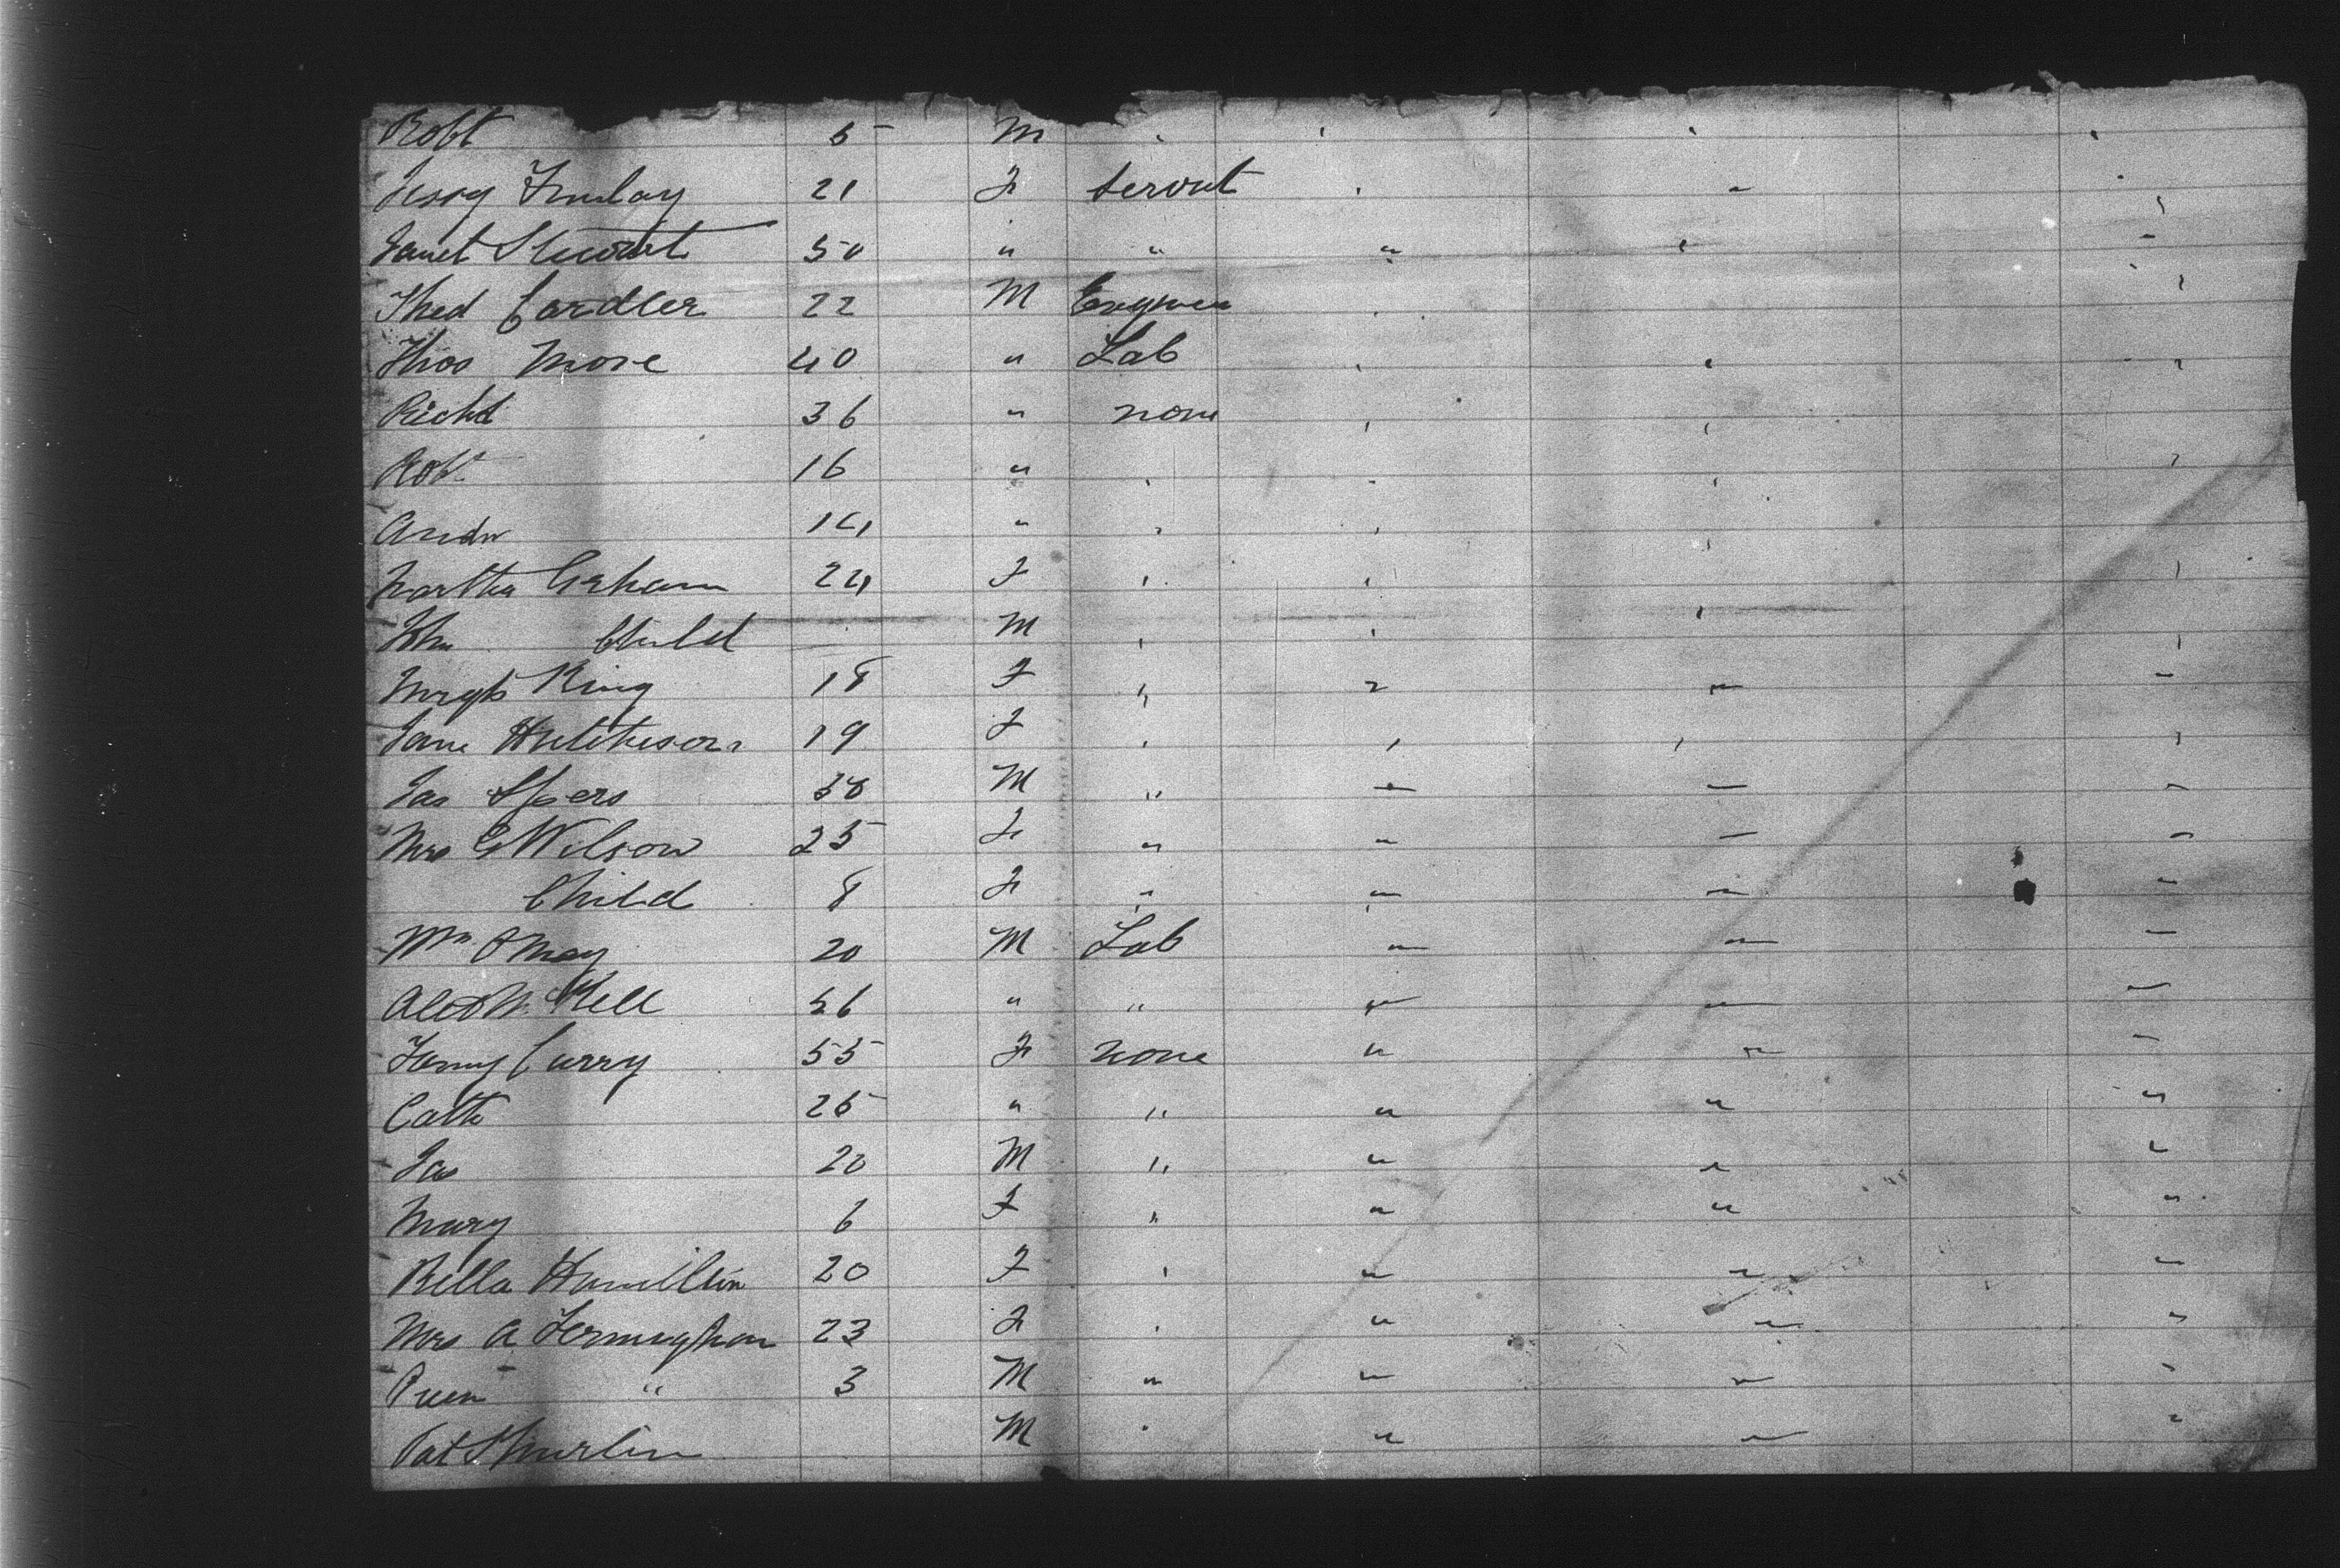 Robt 5 M
Jessy Finlay 21 F Servnt
Janet Stewart 50 " " "
Fred Cardler 22 M
Thos More 40 " Lab
Richd 36 " none
Robt 16 "
Andw 14 "
Martha Graham 24 F
Child M
Margt King 18 F
Jane Hutcheson 19 F
Jas Spers 38 M "
Mrs G Wilson 25 F " "
Child 8 F " "
Wm May 20 M Lab "
Kell 56 " "
Fanny Curry 55 F none "
Cath 25 " " " " "
Jas 20 M " " "
Mary 6 F " " " "
Bella Hamilton 20 F "
Mrs A 23 F "
" 3 M " "
Pat M "